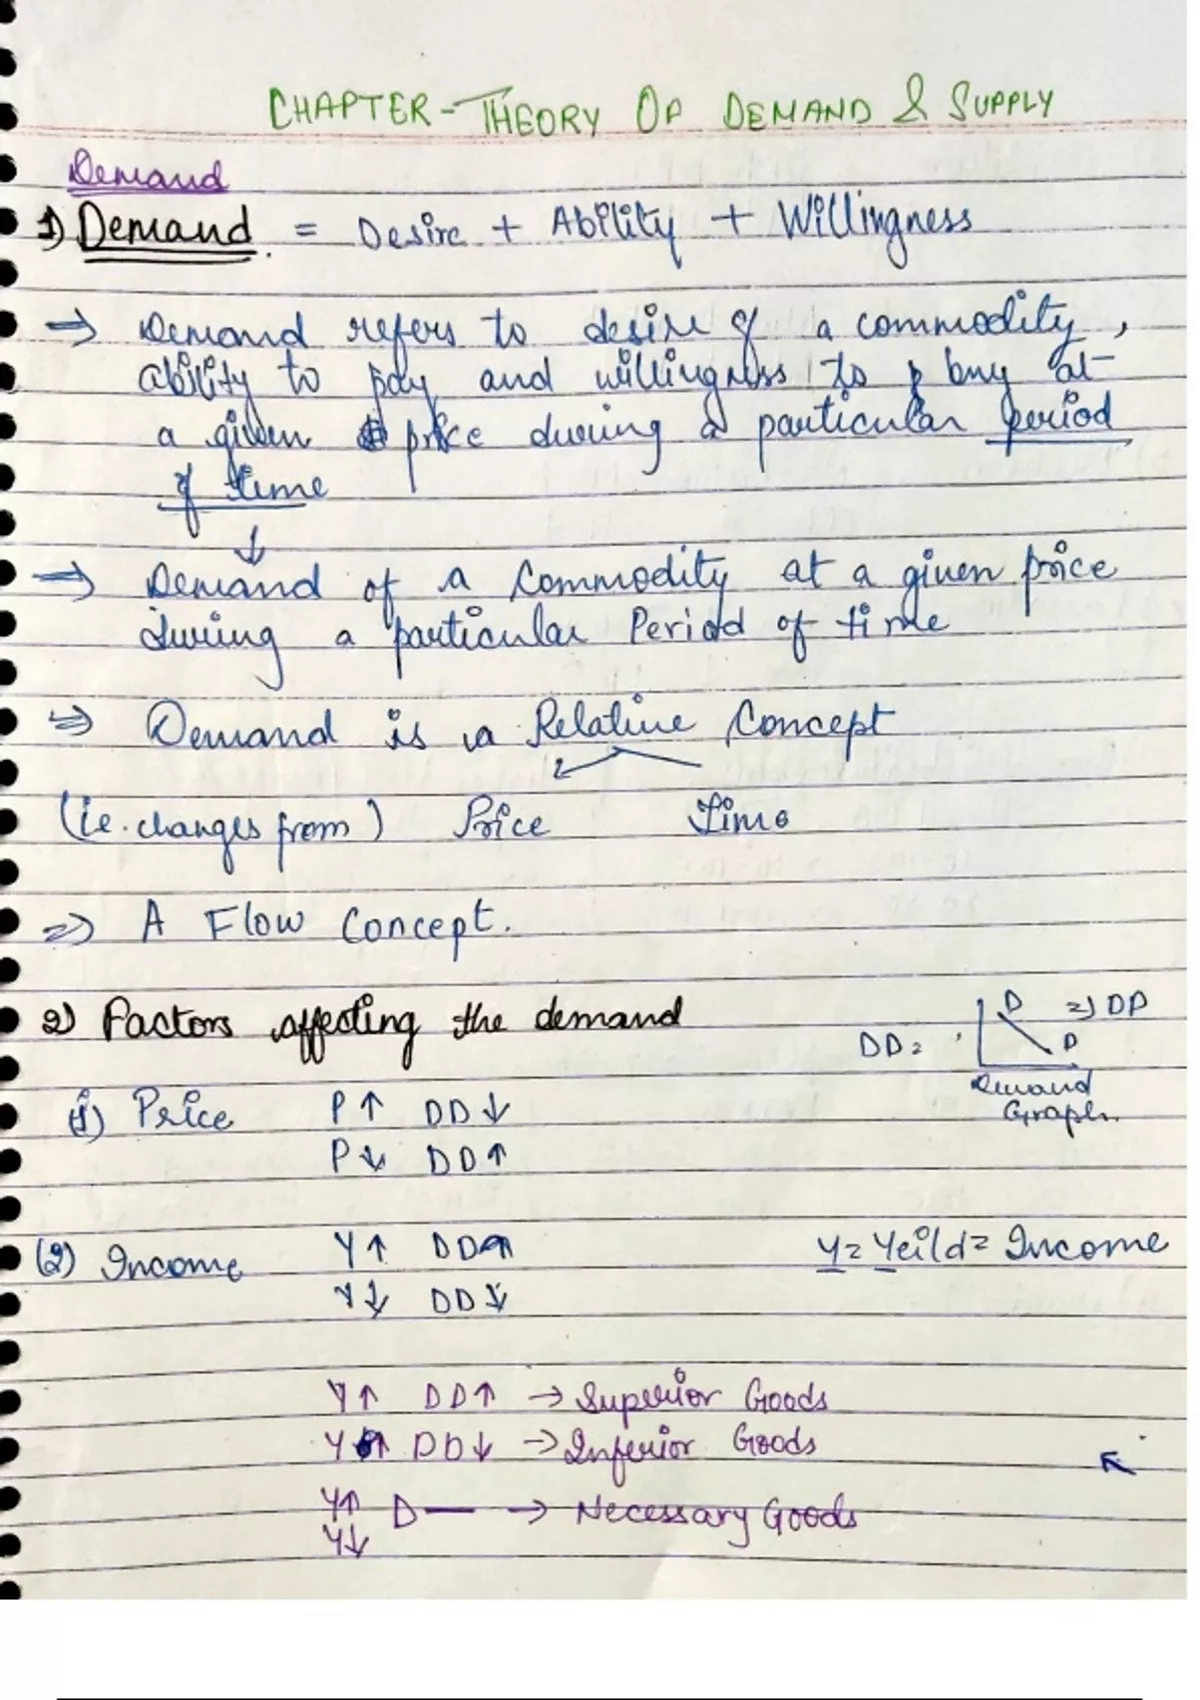 CHAPTER - THEORY OF DEMAND & SUPPLY
Demand
1) Demand = Desire + Ability + Willingness
⇒ Demand refers to desire of a commodity,
ability to pay and willingness to buy at
a given price during a particular period
of time
↓
⇒ Demand of a Commodity at a given price
during a particular Period of time
⇒ Demand is a Relative Concept
(i.e. changes from) Price Time
⇒ A Flow Concept.
2) Factors affecting the demand
D ⇒ DD
DD = D
Demand
Graph.
(1) Price P↑ DD↓
P↓ DD↑
(2) Income Y↑ DD↑ Y = Yeild = Income
Y↓ DD↓
Y↑ DD↑ → Superior Goods
Y↑ DD↓ → Inferior Goods
Y↑ D— → Necessary Goods
Y↓